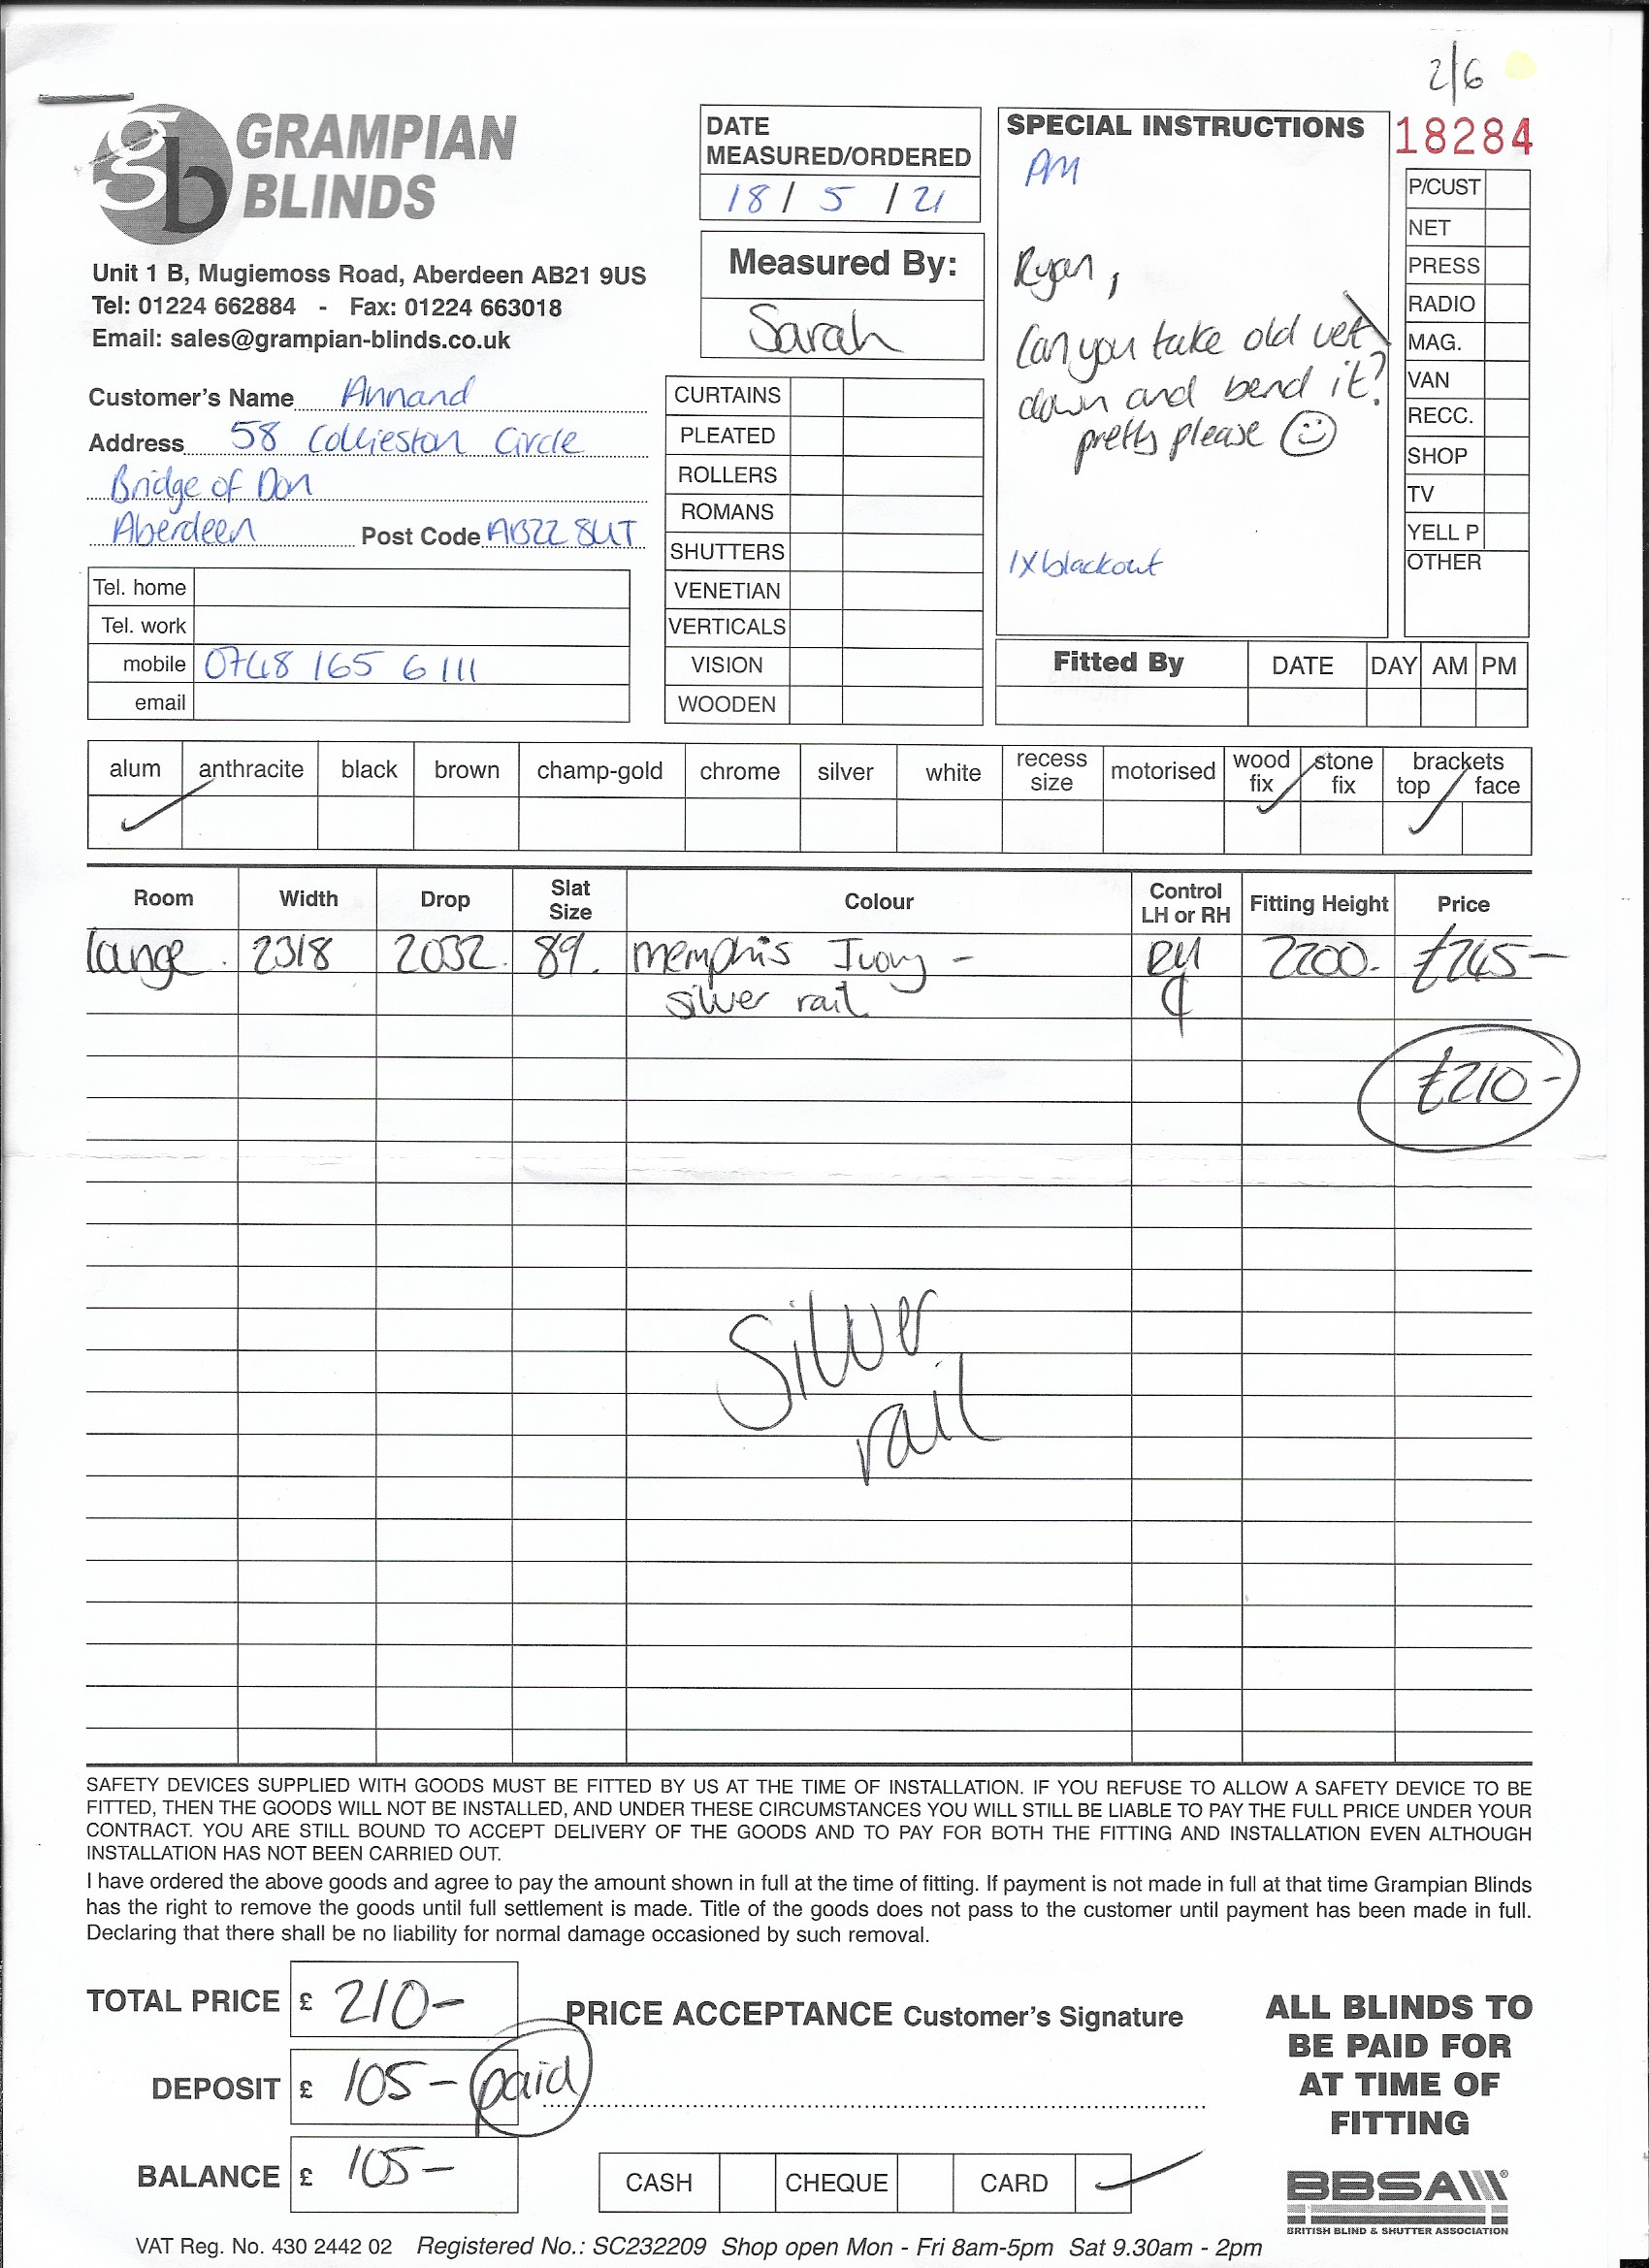 2/6
GRAMPIAN
BLINDS
Unit 1 B, Mugiemoss Road, Aberdeen AB21 9US
Tel: 01224 662884 - Fax: 01224 663018
Email: sales@grampian-blinds.co.uk
DATE
MEASURED/ORDERED
18 / 5 / 21
Measured By:
Sarah
SPECIAL INSTRUCTIONS
AM
Ryan,
Can you take old vet
down and bend it?
pretty please
1x blackout
18284
P/CUST
NET
PRESS
RADIO
MAG.
VAN
RECC.
SHOP
TV
YELL P
OTHER
Customer's Name Annand
Address 58 Collieston Circle
Bridge of Don
Aberdeen Post Code AB22 8UT
Tel. home
Tel. work
mobile 0748 165 6111
email
CURTAINS
PLEATED
ROLLERS
ROMANS
SHUTTERS
VENETIAN
VERTICALS
VISION
WOODEN
Fitted By DATE DAY AM PM
alum anthracite black brown champ-gold chrome silver white recess size motorised wood fix stone fix brackets top face
Room Width Drop Slat Size Colour Control LH or RH Fitting Height Price
lounge. 2318 2032. 89. memphis Ivory - RH 2200. £245-
silver rail
£210-
Silver
rail
SAFETY DEVICES SUPPLIED WITH GOODS MUST BE FITTED BY US AT THE TIME OF INSTALLATION. IF YOU REFUSE TO ALLOW A SAFETY DEVICE TO BE
FITTED, THEN THE GOODS WILL NOT BE INSTALLED, AND UNDER THESE CIRCUMSTANCES YOU WILL STILL BE LIABLE TO PAY THE FULL PRICE UNDER YOUR
CONTRACT. YOU ARE STILL BOUND TO ACCEPT DELIVERY OF THE GOODS AND TO PAY FOR BOTH THE FITTING AND INSTALLATION EVEN ALTHOUGH
INSTALLATION HAS NOT BEEN CARRIED OUT.
I have ordered the above goods and agree to pay the amount shown in full at the time of fitting. If payment is not made in full at that time Grampian Blinds
has the right to remove the goods until full settlement is made. Title of the goods does not pass to the customer until payment has been made in full.
Declaring that there shall be no liability for normal damage occasioned by such removal.
TOTAL PRICE £ 210-
DEPOSIT £ 105- paid
BALANCE £ 105-
PRICE ACCEPTANCE Customer's Signature
CASH CHEQUE CARD
ALL BLINDS TO
BE PAID FOR
AT TIME OF
FITTING
BBSA
BRITISH BLIND & SHUTTER ASSOCIATION
VAT Reg. No. 430 2442 02 Registered No.: SC232209 Shop open Mon - Fri 8am-5pm Sat 9.30am - 2pm